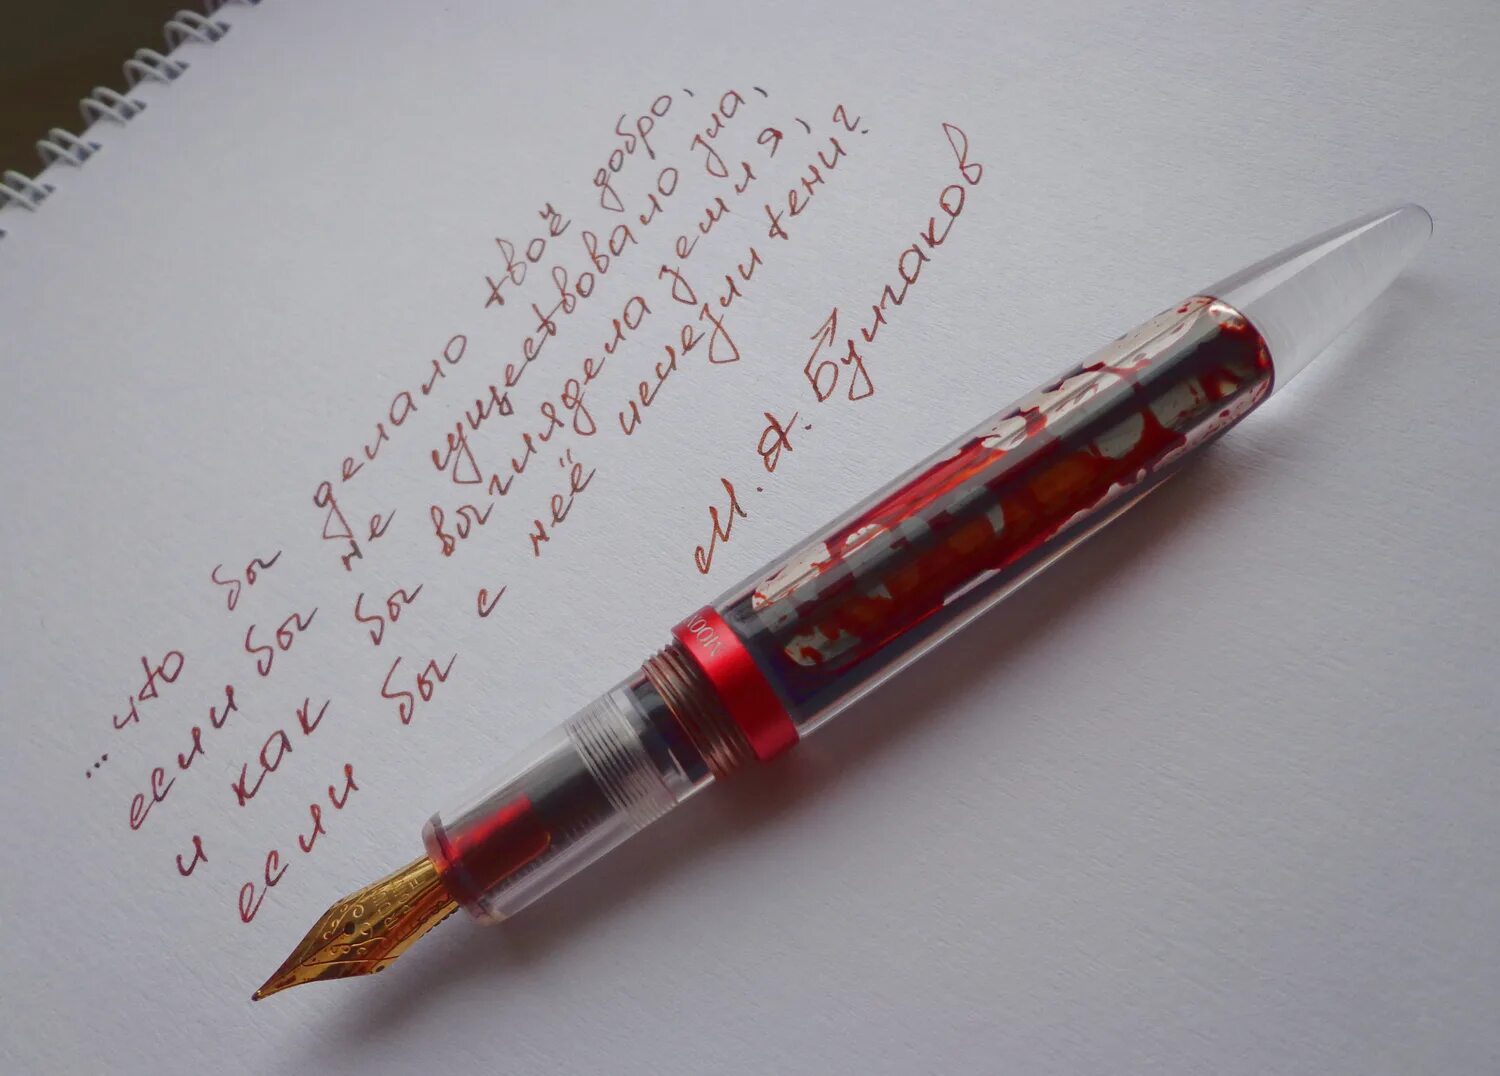 ...что бы делало твоё добро,
если бы не существовало зла,
и как бы выглядела земля,
если бы с неё исчезли тени?
М. А. Булгаков
MOON